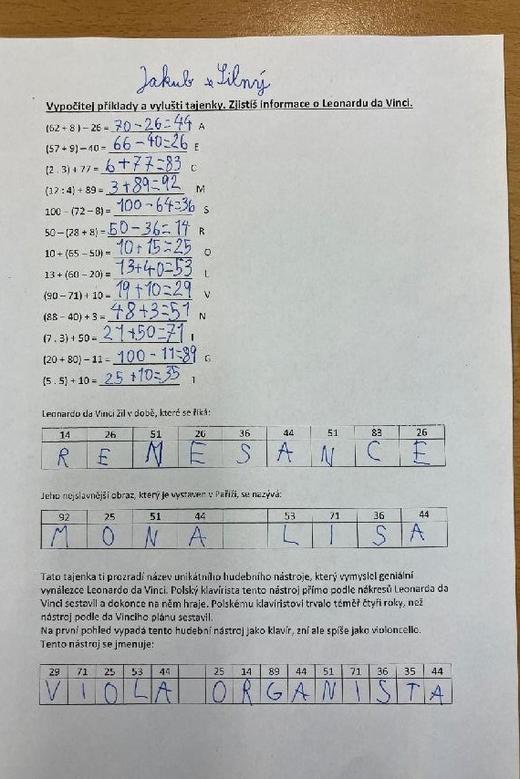 Jakub Silný
Vypočítej příklady a vylušti tajenky. Zjistíš informace o Leonardu da Vinci.
(62 + 8 ) – 26 = 70 - 26 = 44 A
(57 + 9) – 40 = 66 - 40 = 26 E
(2 . 3) + 77 = 6 + 77 = 83 C
(12 : 4) + 89 = 3 + 89 = 92 M
100 – (72 – 8) = 100 - 64 = 36 S
50 – (28 + 8) = 50 - 36 = 14 R
10 + (65 – 50) = 10 + 15 = 25 O
13 + (60 – 20) = 13 + 40 = 53 L
(90 – 71) + 10 = 19 + 10 = 29 V
(88 – 40) + 3 = 48 + 3 = 51 N
(7 . 3) + 50 = 21 + 50 = 71 I
(20 + 80) – 11 = 100 - 11 = 89 G
(5 . 5) + 10 = 25 + 10 = 35 T
Leonardo da Vinci žil v době, které se říká:
14 26 51 26 36 44 51 83 26
R E N E S A N C E
Jeho nejslavnější obraz, který je vystaven v Paříži, se nazývá:
92 25 51 44 53 71 36 44
M O N A L I S A
Tato tajenka ti prozradí název unikátního hudebního nástroje, který vymyslel geniální
vynálezce Leonardo da Vinci. Polský klavírista tento nástroj přímo podle nákresů Leonarda da
Vinci sestavil a dokonce na něm hraje. Polskému klavíristovi trvalo téměř čtyři roky, než
nástroj podle da Vinciho plánu sestavil.
Na první pohled vypadá tento hudební nástroj jako klavír, zní ale spíše jako violoncello.
Tento nástroj se jmenuje:
29 71 25 53 44 25 14 89 44 51 71 36 35 44
V I O L A O R G A N I S T A